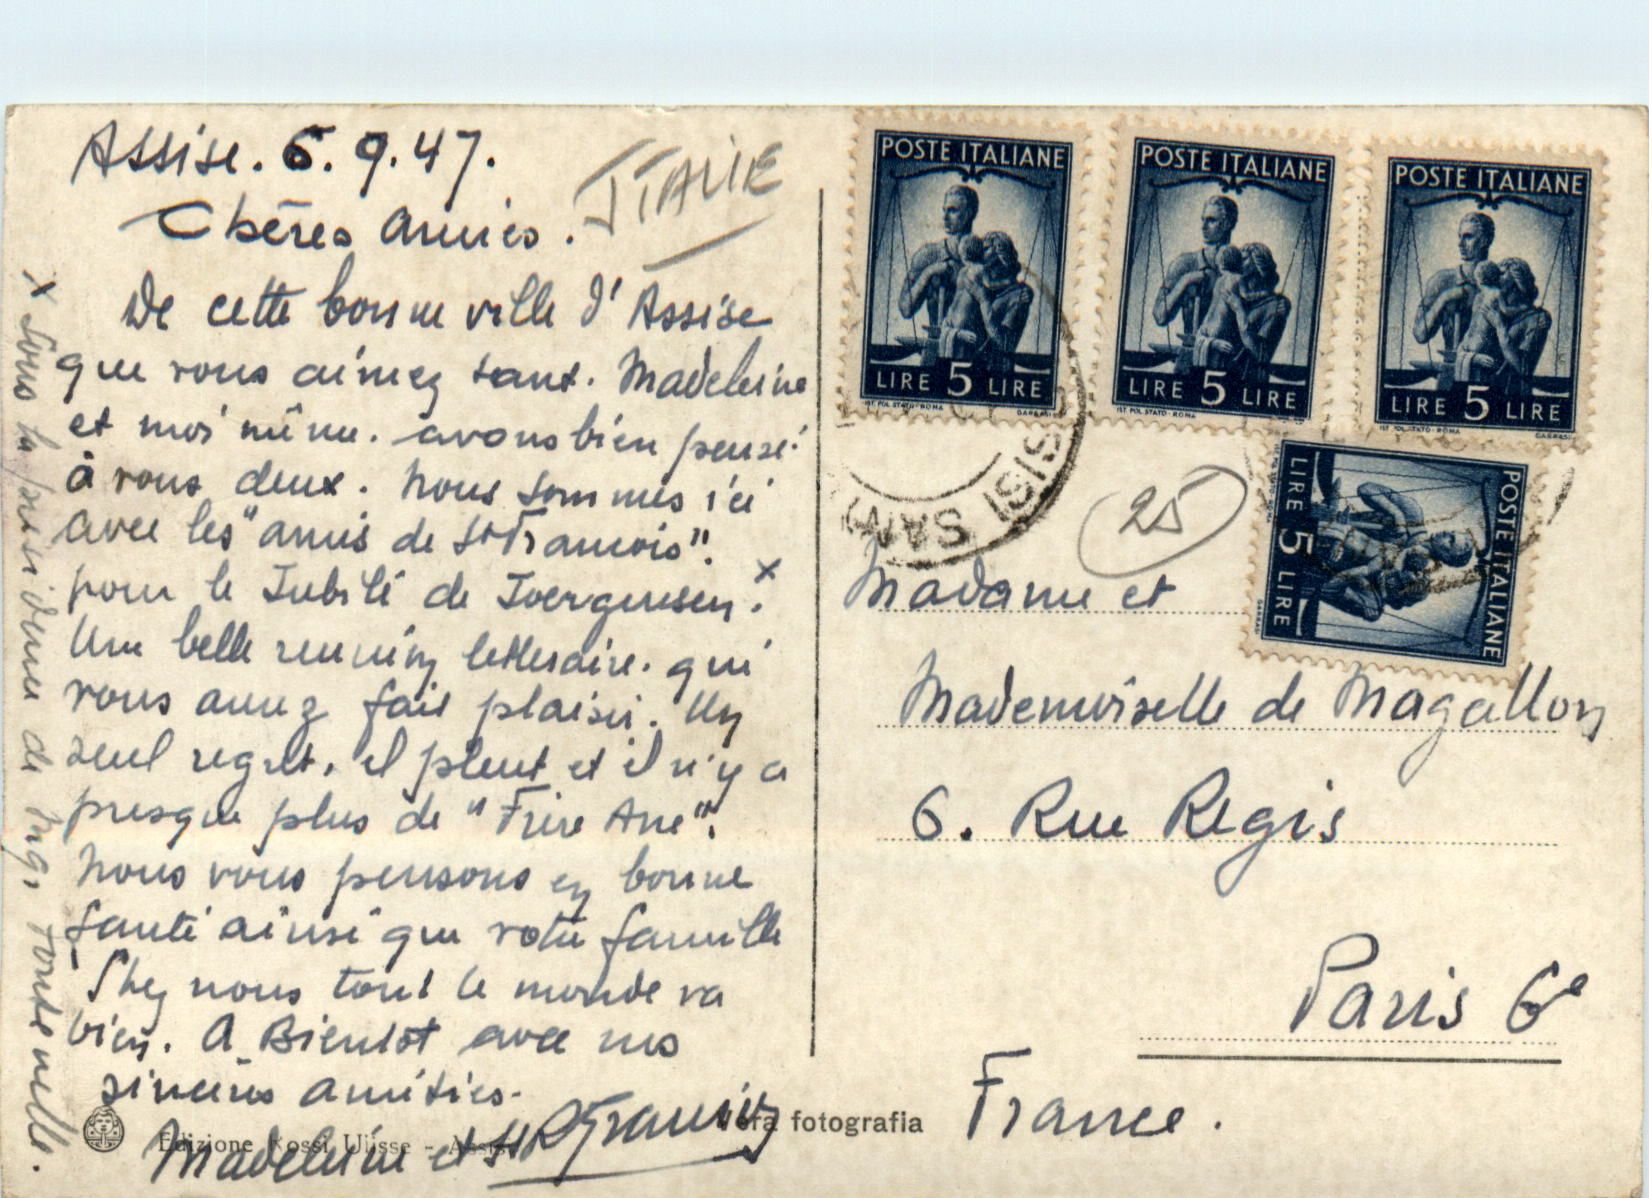 Assise. 6.9.47.
ITALIE
Chères amies.
De cette bonne ville d'Assise
que vous aimez tant. Madeleine
et moi même. avons bien pensé
à vous deux. Nous sommes ici
avec les "amis de St François".
pour le Jubilé de Joergensen. x
Une belle réunion litteraire. qui
vous aurez fait plaisir. Un
seul regret, il pleut et il n'y a
presque plus de "Frère Ane".
Nous vous pensons en bonne
santé ainsi que votre famille
Chez nous tout le monde va
bien. A Bientôt avec nos
sincères amitiés.
Madeleine et
x Sous la présidence de Mgr Fontenelle.
Edizione Rossi Ulisse - Assisi
Vera fotografia
POSTE ITALIANE
LIRE 5 LIRE
IST. POL. STATO - ROMA
GARRASI
POSTE ITALIANE
LIRE 5 LIRE
IST. POL. STATO - ROMA
POSTE ITALIANE
LIRE 5 LIRE
IST. POL. STATO - ROMA
GARRASI
POSTE ITALIANE
LIRE 5 LIRE
GARRASI
25
Madame et
Mademoiselle de Magallon
6. Rue Regis
Paris 6e
France.